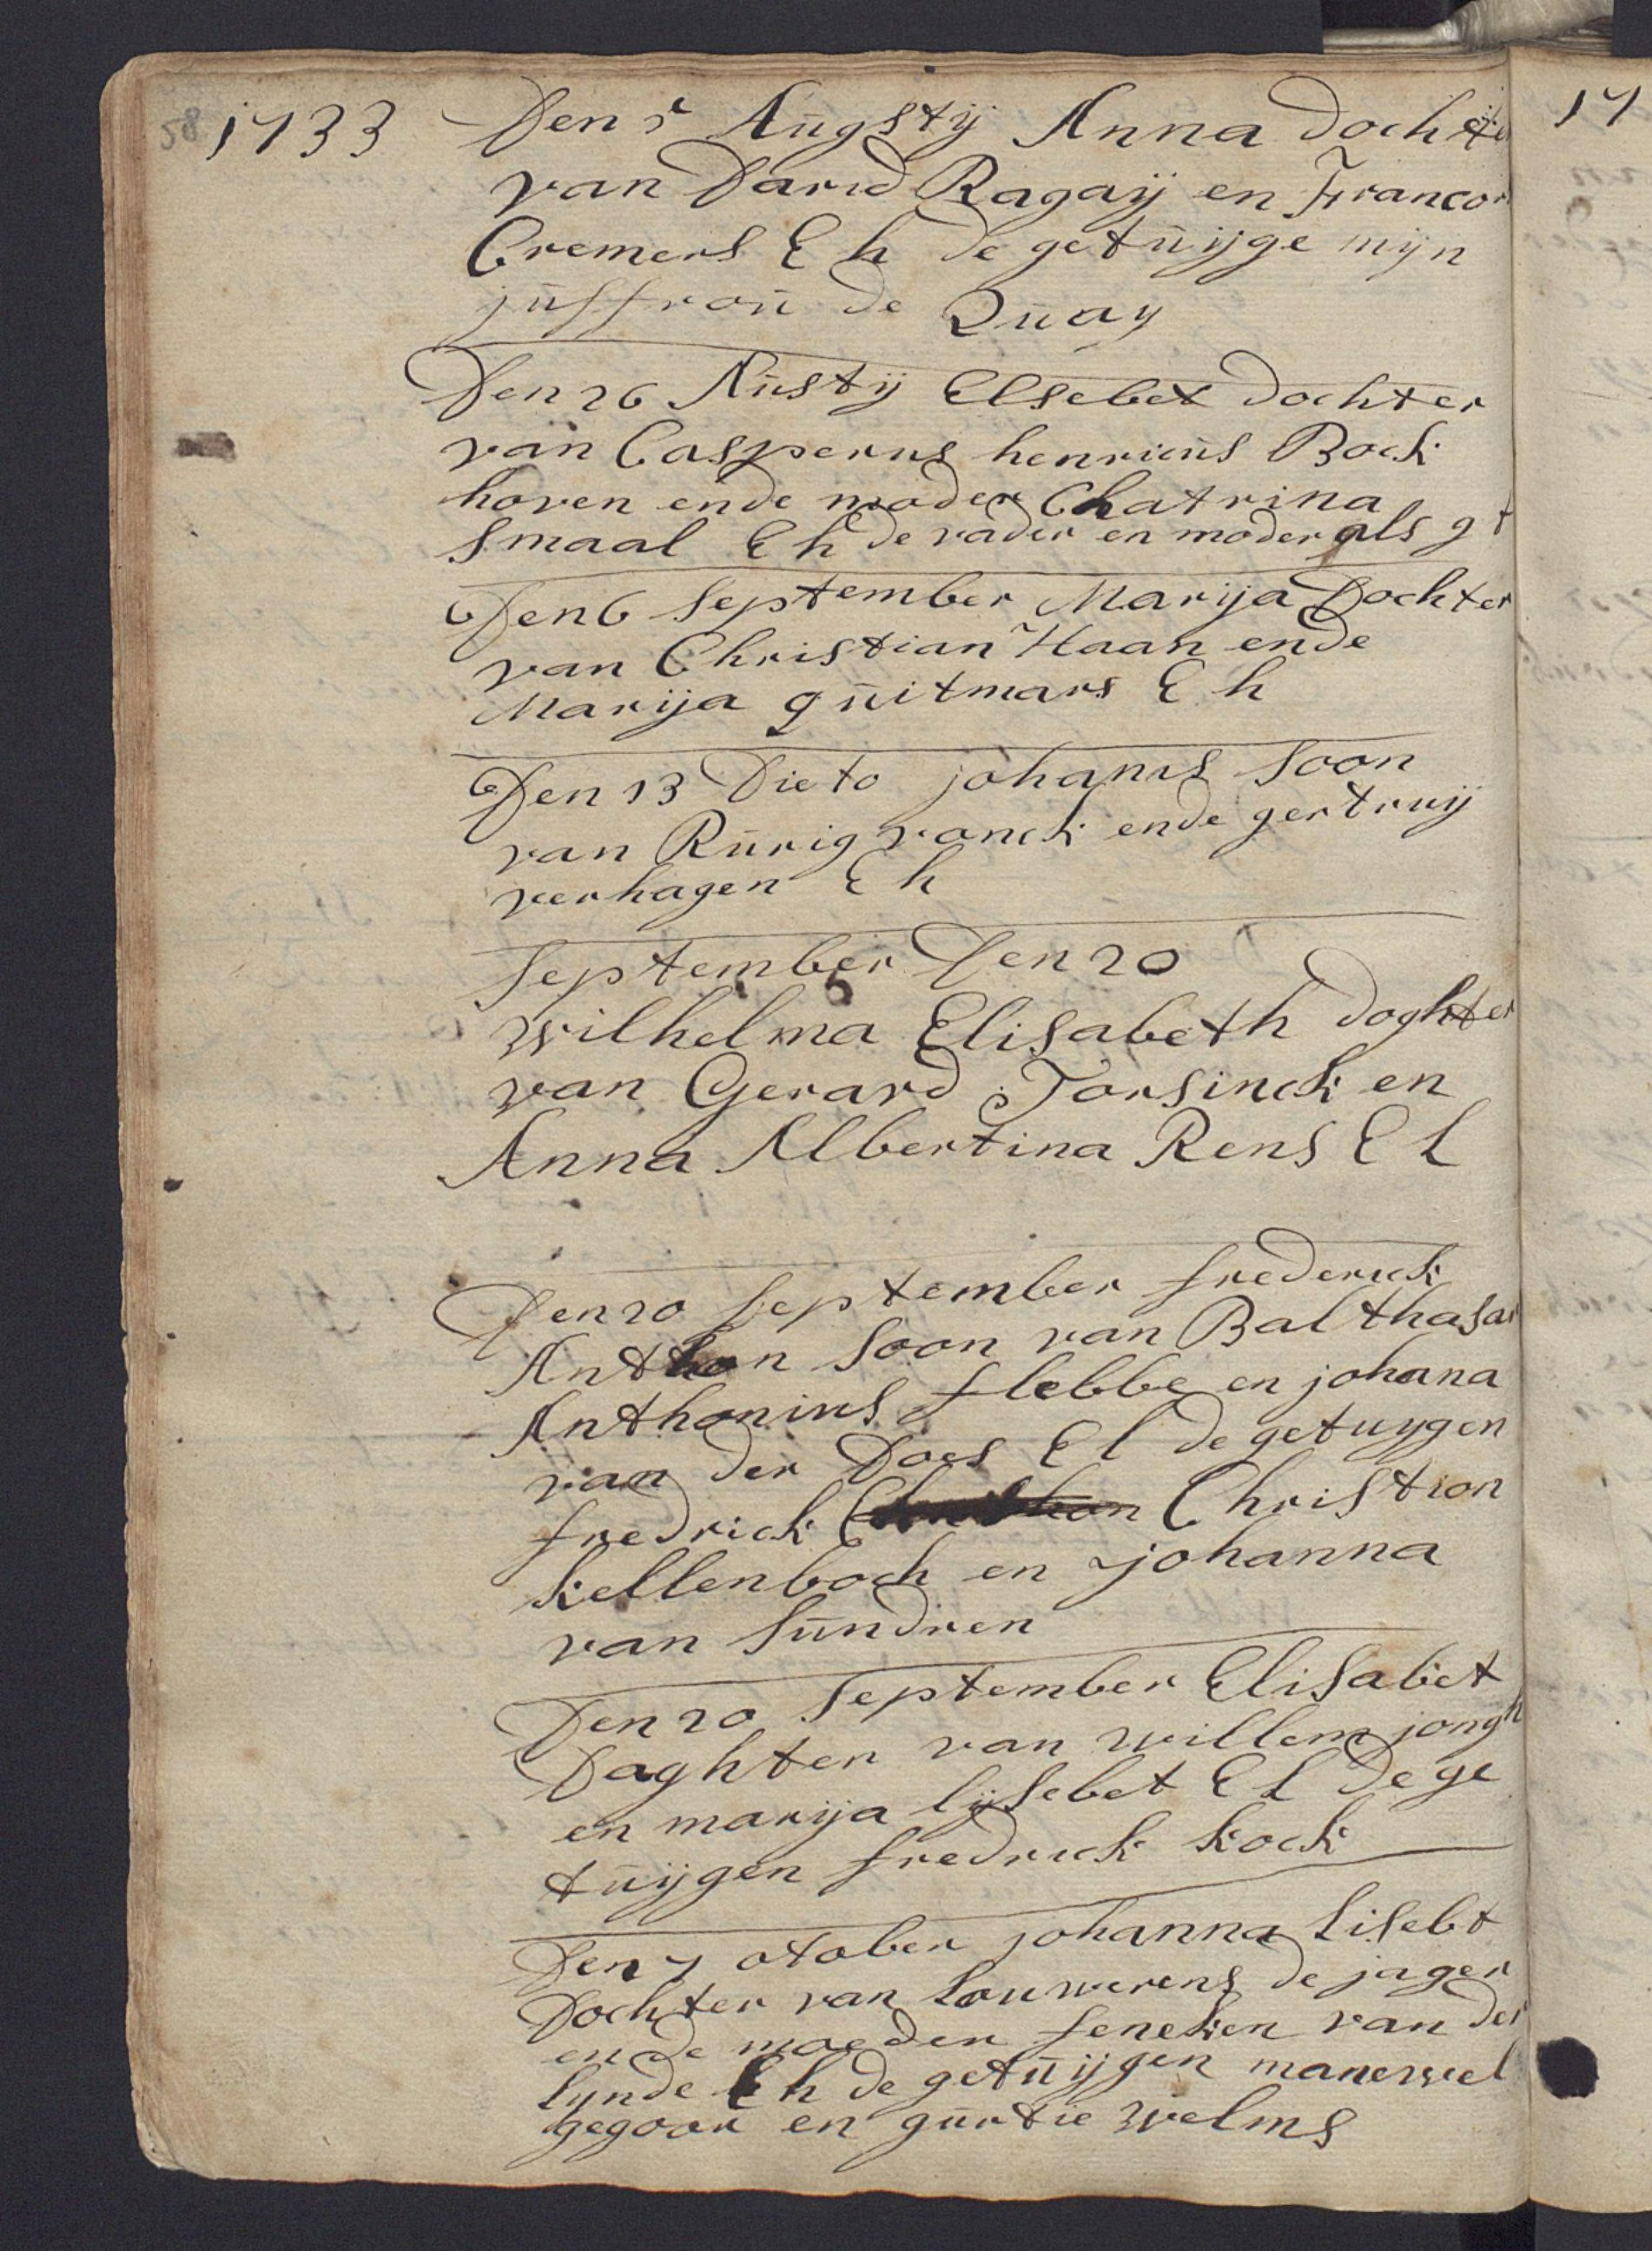 58 1733 Den 5 Augstij Anna dochte
van David Ragaij en Francor
Cremers E h de getuijge mijn
juffrou de Quay
Den 26 Austij Elsebet dochter
van Casperus henricus Bock
hoven ende moder Chatrina
Smaal E h de vader en moder als gt
Den 6 September Marija Dochter
van Christian Haan ende
Marija guitmars E h
Den 13 Dieto johanis soon
van Rurig vonck ende gertruij
verhagen E h
September Den 20
Wilhelma Elisabeth doghter
van Gerard Torsinck en
Anna Albertina Rens E L
Den 20 September frederick
Anthon Soon van Balthasar
Anthonius flebbe en johana
van der Does E l de getuygen
fredrick Christion
kellenboch en johanna
van Sundren
Den 20 September Elisabet
Daghter van willem jongh
en marija lijsebet E L de ge
tuijgen fredrick kock
Den 7 otober johanna Lisebt
Dochter van Louwerens de jager
ende moeder feneken van der
lynde E h de getuijgen manewel
gegoor en gurtie welms
17